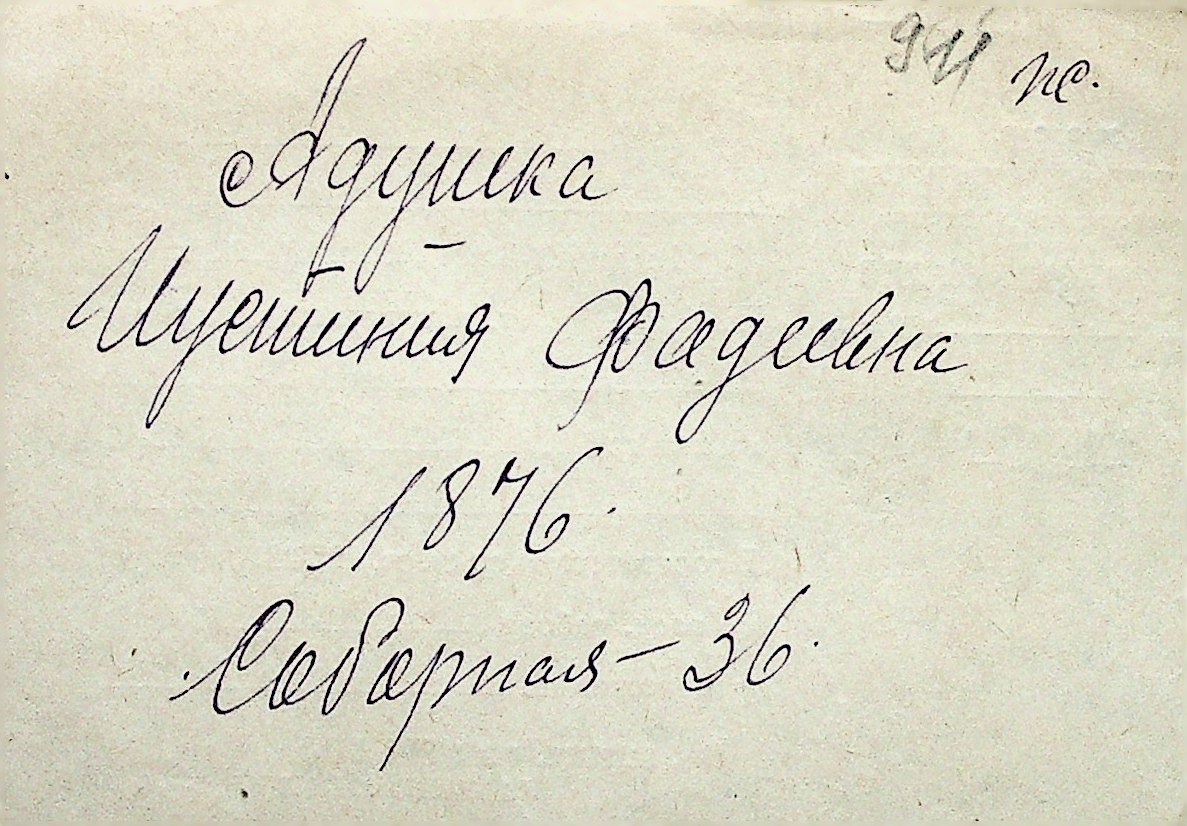 911 пс.
Адушка
Иустиния Фадеевна
1876.
Соборная – 36.